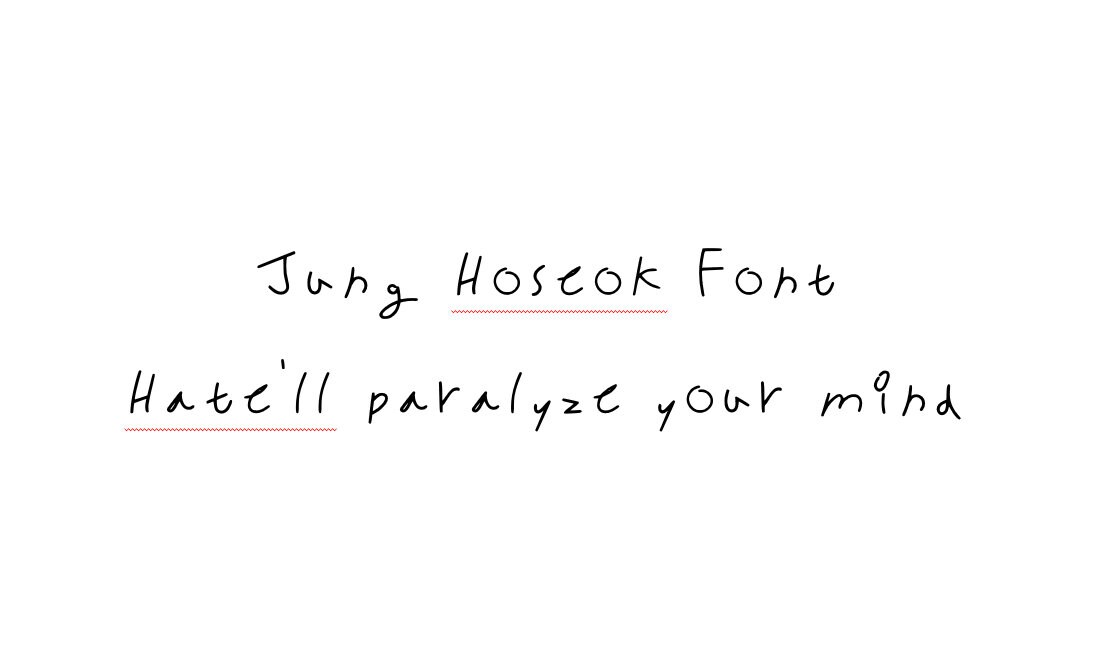 Jung Hoseok Font
Hate'll paralyze your mind